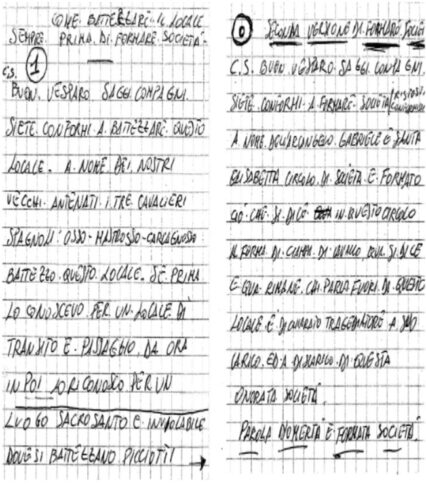 COME BATTEZZARE IL LOCALE
SEMPRE PRIMA DI FORMARE SOCIETÀ
C.S. 1
BUON VESPARO SAGGI COMPAGNI
SIETE CONFORMI A BATTEZZARE QUESTO
LOCALE. A NOME DEI NOSTRI
VECCHI ANTENATI I TRE CAVALIERI
SPAGNOLI: OSSO-MASTROSSO-CARCAGNOSSO
BATTEZZO QUESTO LOCALE SE PRIMA
LO CONOSCEVO PER UN LOCALE DI
TRANSITO E PASSAGGIO DA ORA
IN POI LO RICONOSCO PER UN
LUOGO SACRO SANTO E INVIOLABILE
DOVE SI BATTEZZANO PICCIOTTI →
0 SECONDA VERSIONE DI FORMARE SOCIETÀ
C.S. BUON VESPARO SAGGI COMPAGNI.
SIETE CONFORMI A FORMARE SOCIETÀ
A NOME DELL'ARCANGELO GABRIELE E SANTA
ELISABETTA CIRCOLO DI SOCIETÀ È FORMATO
CIÒ CHE SI DICE IN QUESTO CIRCOLO
A FORMA DI DI CAVALLO QUA SI DICE
E QUA RIMANE. CHI PARLA FUORI DI QUESTO
LOCALE È DICHIARATO TRAGEDIATORE A SUO
CARICO ED A DISCARICO DI QUESTA
ONORATA SOCIETÀ.
PAROLA D'OMERTÀ È FORMATA SOCIETÀ.